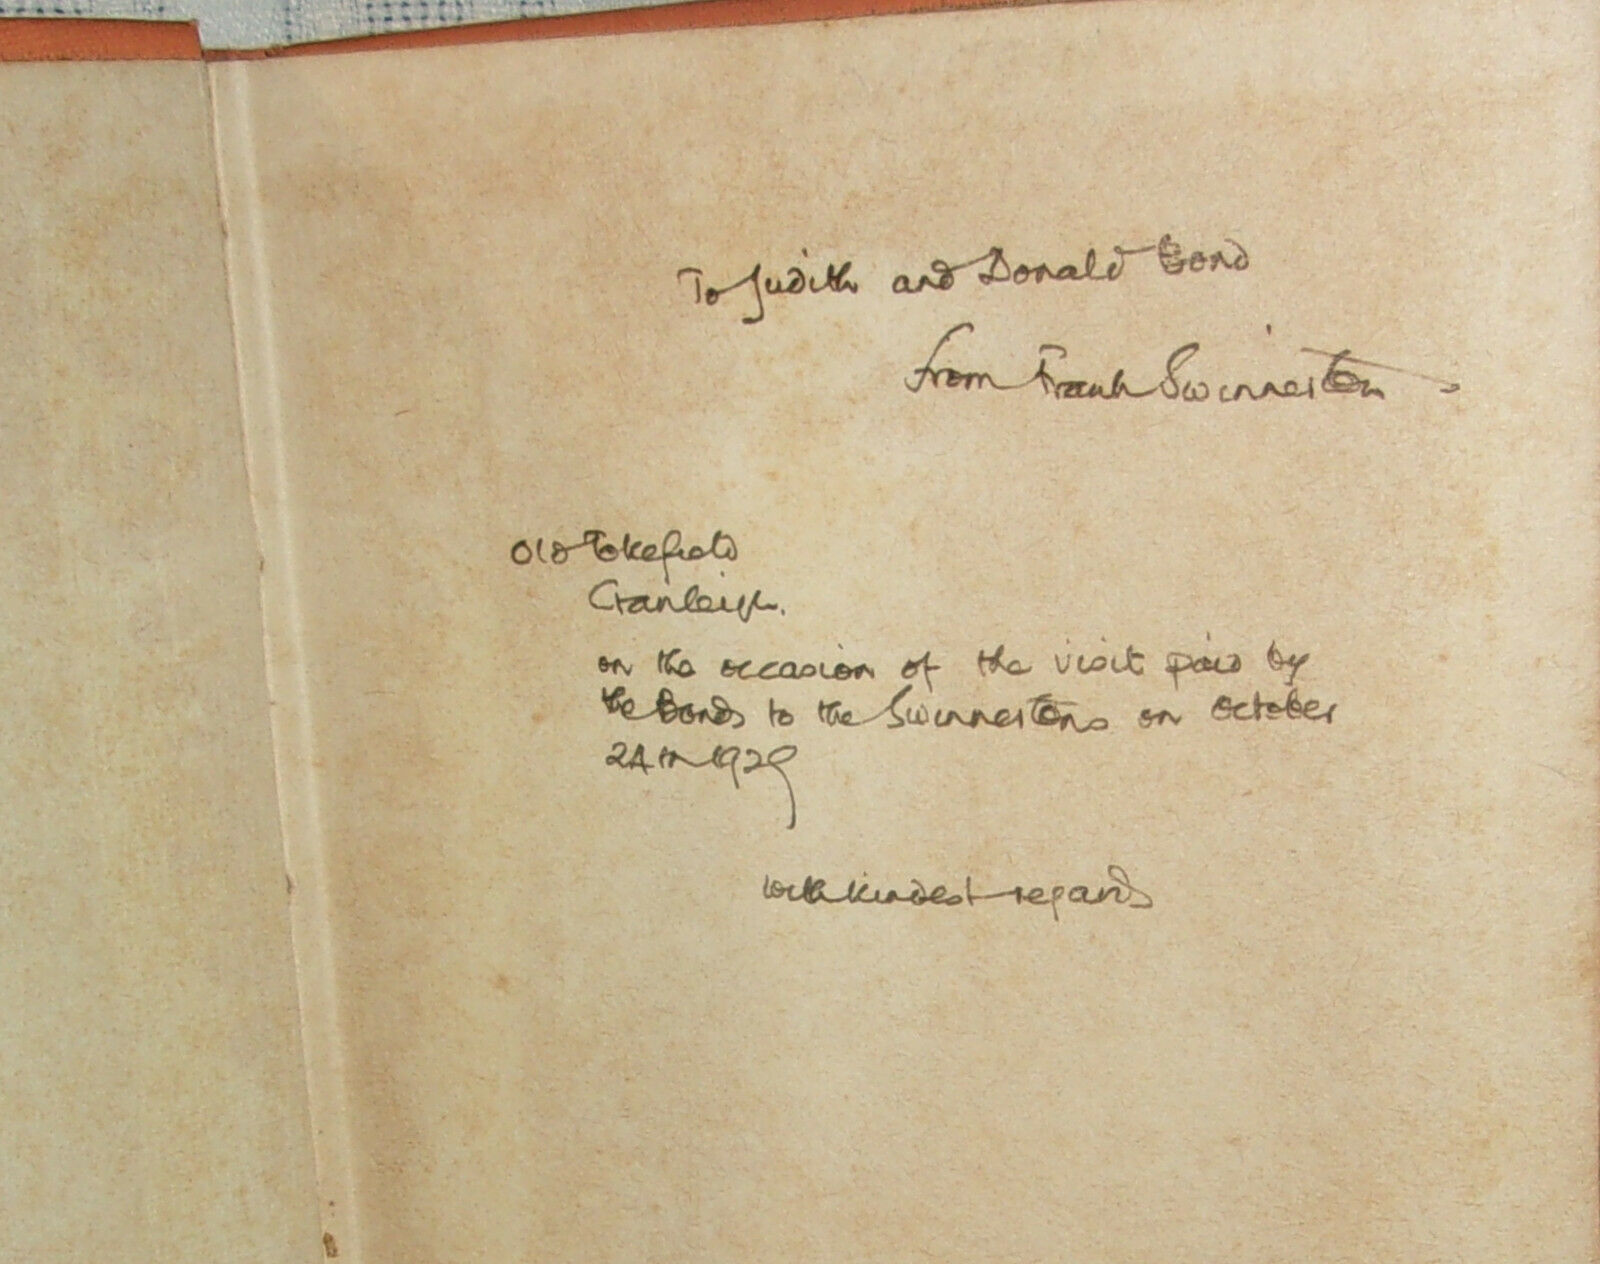 To Judith and Donald Bond
from Frank Swinnerton
Old Tokefield
Cranleigh.
on the occasion of the visit paid by
the Bonds to the Swinnertons on October
24th 1929
with kindest regards